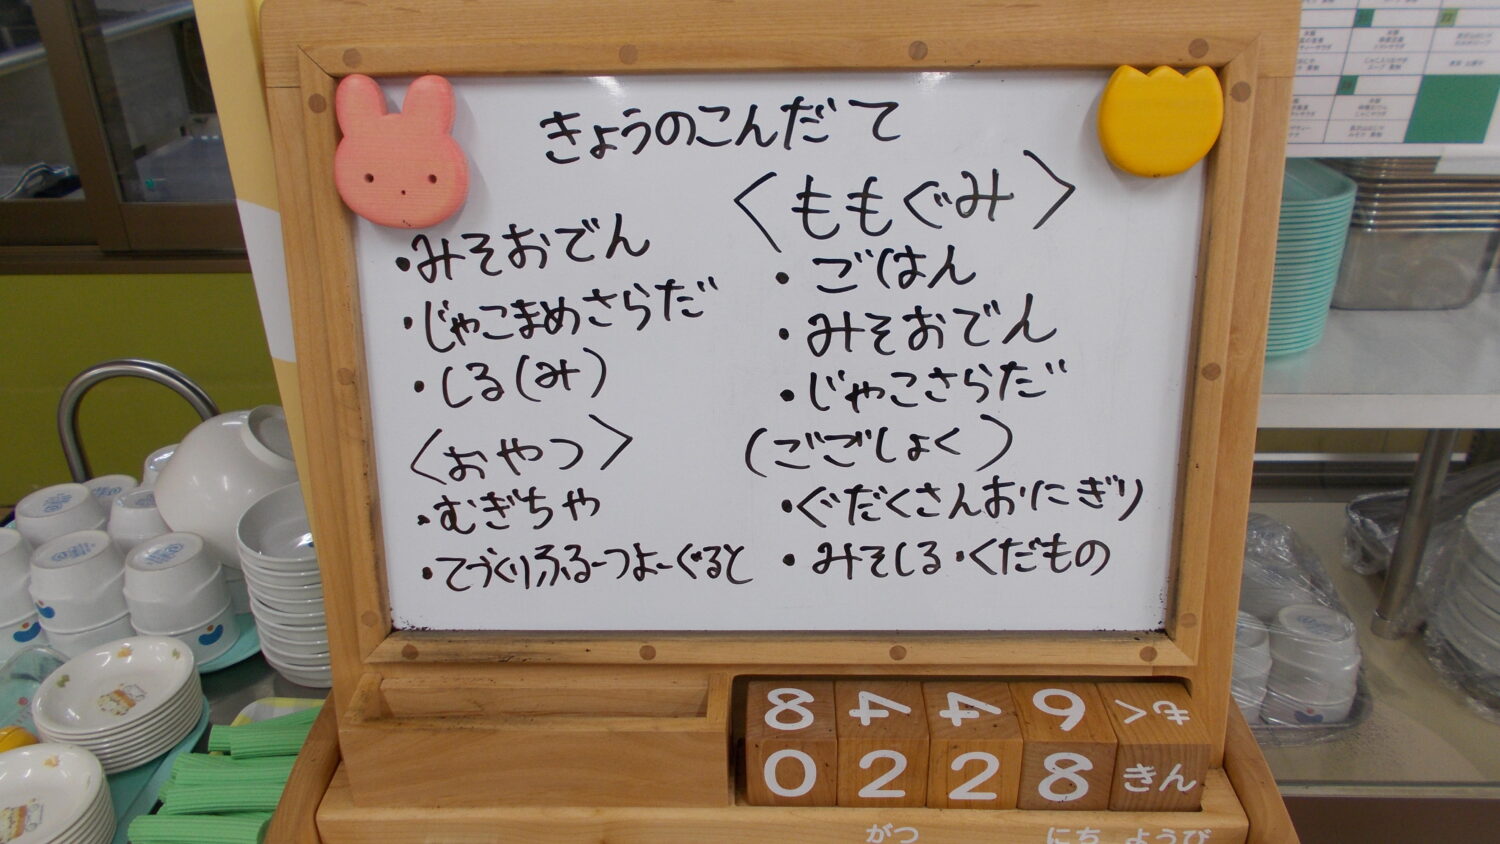 きょうのこんだて
・みそおでん
・じゃこまめさらだ
・しる(み)
〈おやつ〉
・むぎちゃ
・てづくりふるーつよーぐると
〈ももぐみ〉
・ごはん
・みそおでん
・じゃこさらだ
(ごごしょく)
・ぐだくさんおにぎり
・みそしる・くだもの
8 4 4 9 もく
0 2 2 8 きん
がつ にち ようび